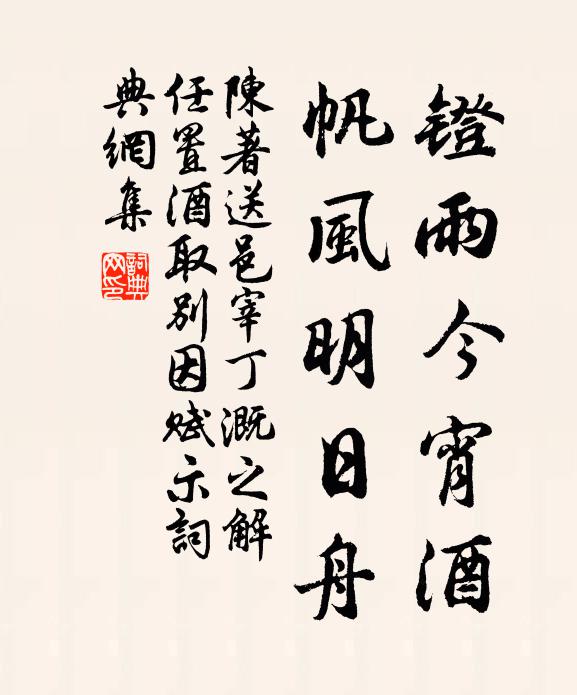 镫雨今宵酒
帆風明日舟
陳著送邑宰丁溉之解
任置酒取別因賦示詞
典網集
詞典网印